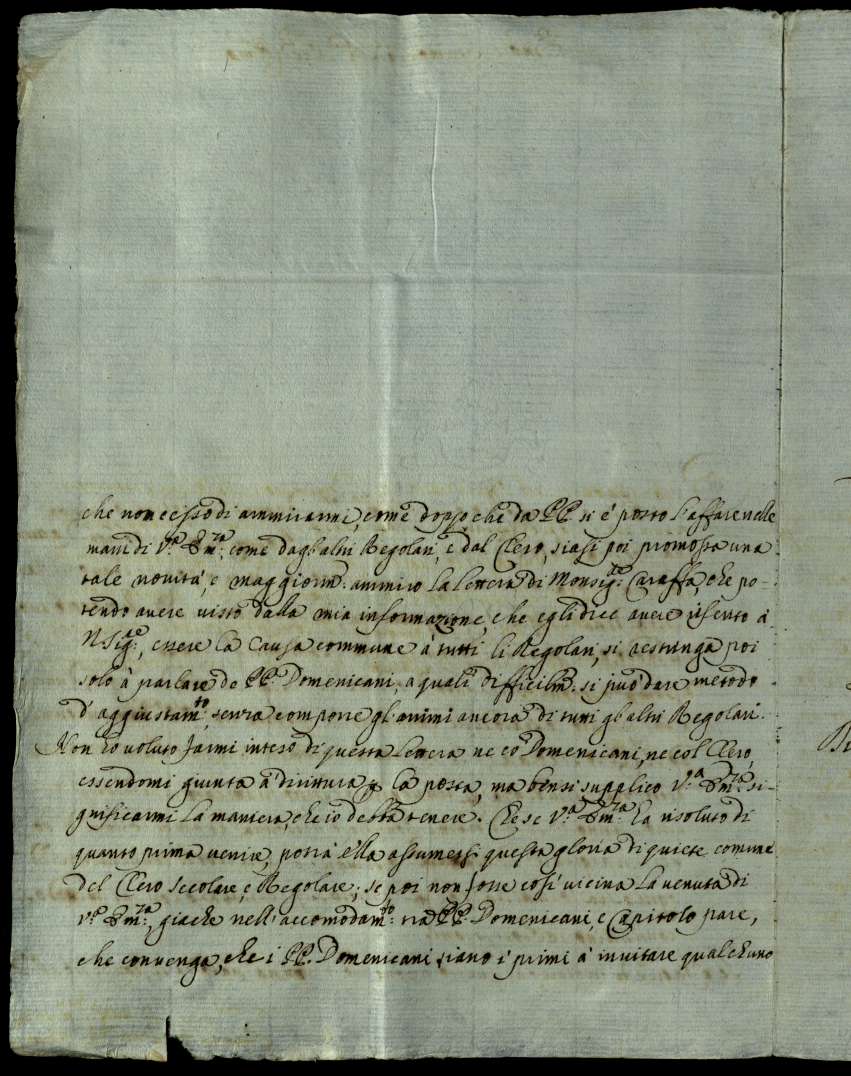 che non cesso di ammirarmi, come doppo che da PP. si è posto l'affare nelle
mani di V.ª Em.za, come dagl'altri Regolari, e dal Clero, siasi poi promossa una
tale novità, e maggiorm. ammiro la lettera di Monsig.re Caraffa, che po-
tendo avere visto dalla mia informazione, che egli dice avere riferito à
N. Sig.re, essere la causa commune à tutti li Regolari, si restringa poi
solo à parlare de PP. Domenicani, a quali difficilm. si può dare metodo
d'aggiustam.to, senza comporre gl'animi ancora di tutti gl'altri Regolari.
Non hò voluto farmi inteso di questa lettera ne co Domenicani, ne col Clero,
essendomi giunta à dirittura p la posta, ma bensi supplico V.ª Em.za si-
gnificarmi la maniera, che io debba tenere. Che se V.ª Em.za ha risoluto di
quanto prima venire, potrà ella assumersi questa gloria di quiete comune
del Clero secolare, e Regolare; se poi non fosse così vicina la venuta di
V.ª Em.za, giache nell'accomodam.to trà PP. Domenicani, e Capitolo pare,
che convenga, che i PP. Domenicani siano i primi à invitare qualcheuno